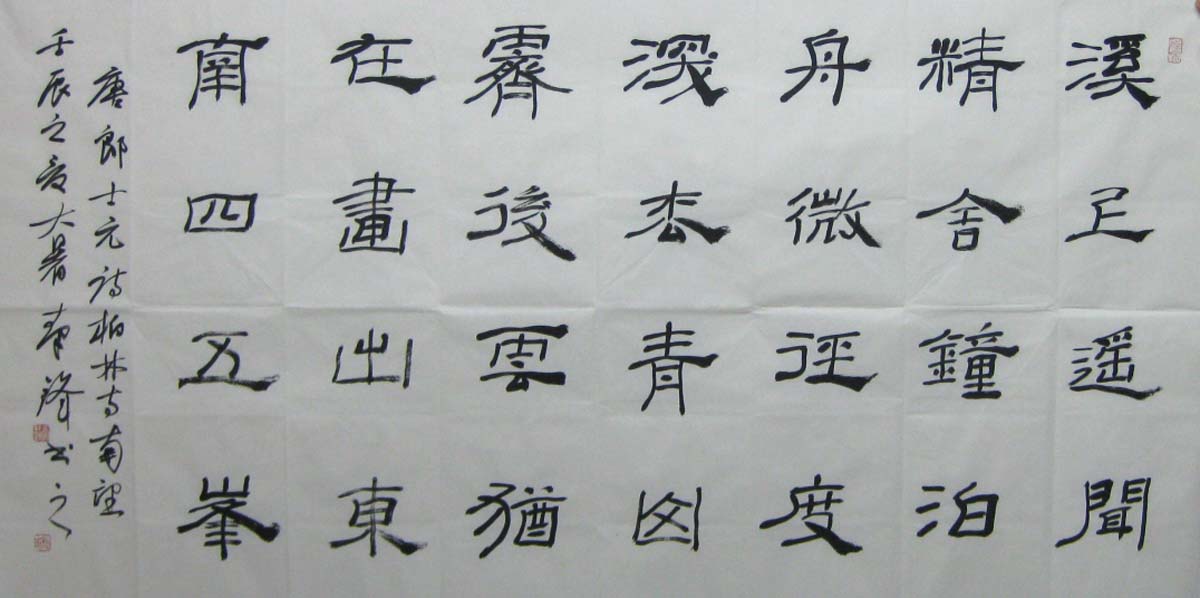 溪上遥聞
精舍鐘泊
舟微徑度
深松青山
霽後雲猶
在畫出東
南四五峯
唐郎士元詩柏林寺南望
壬辰之夏大暑书之